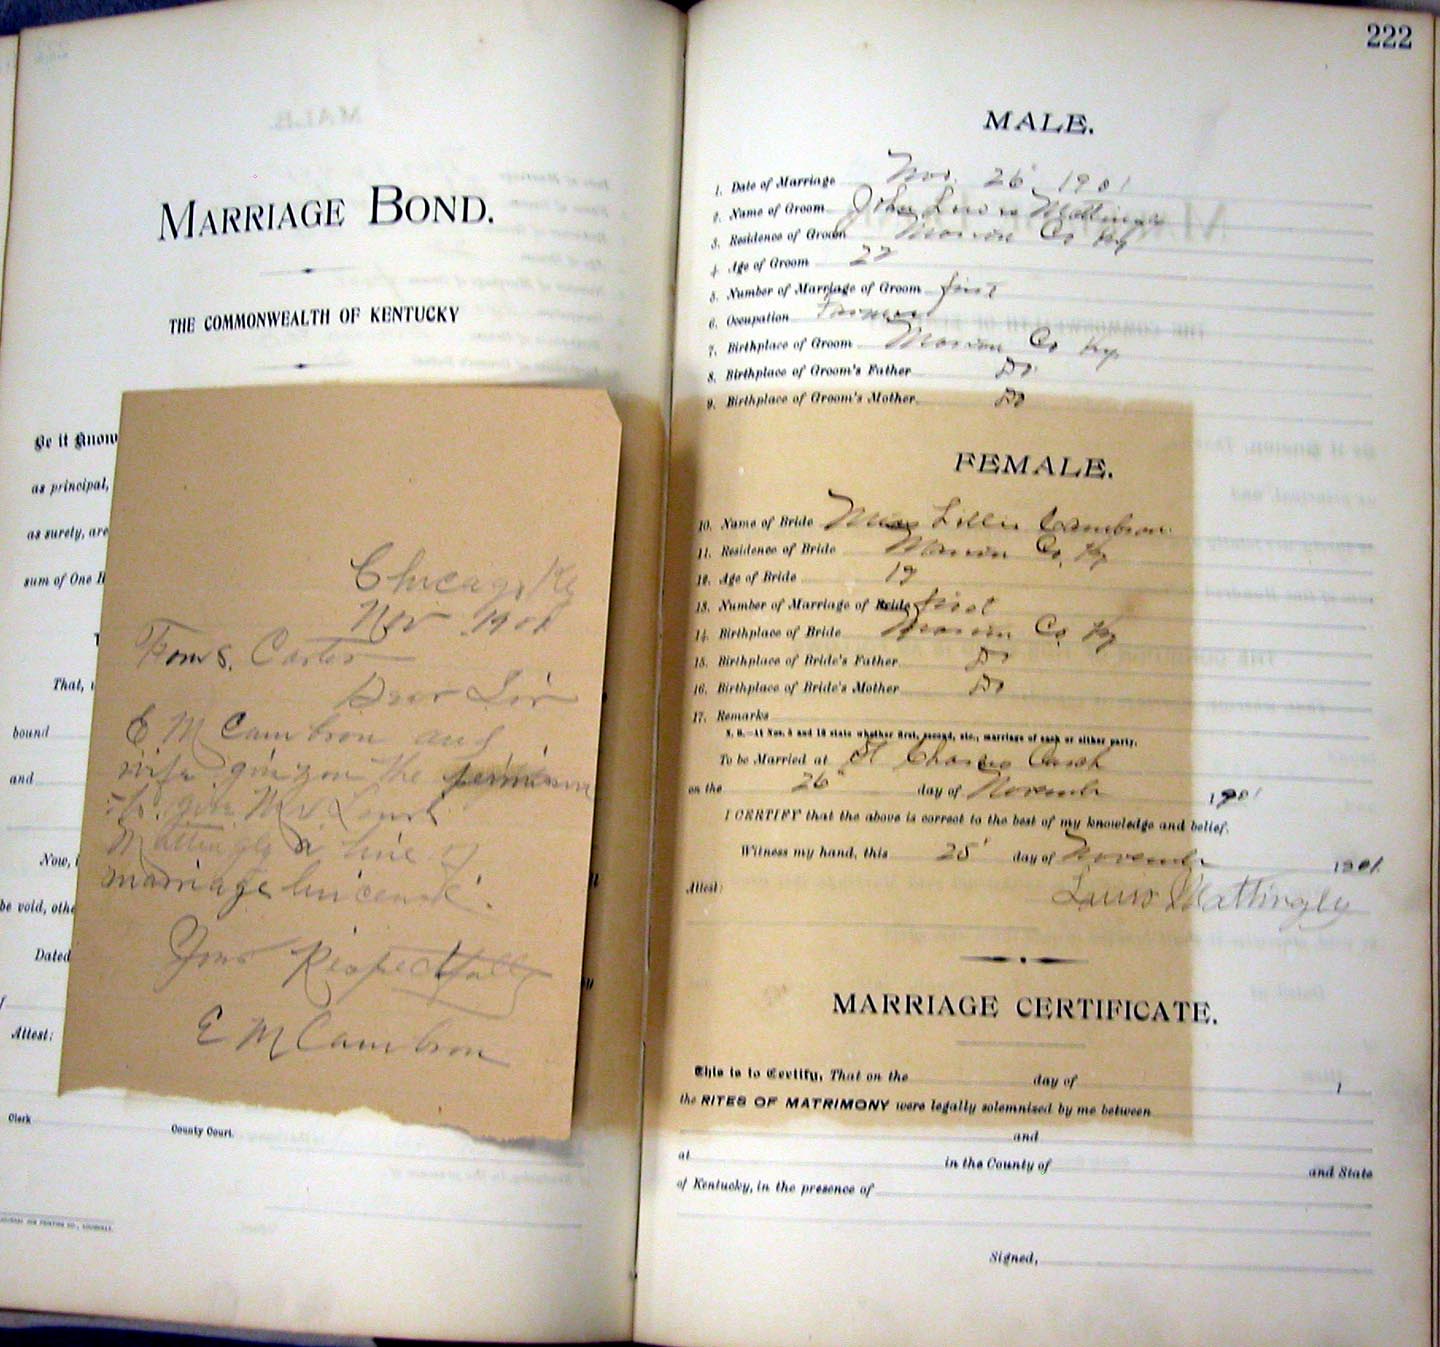 MARRIAGE BOND.
THE COMMONWEALTH OF KENTUCKY
Be it Know
as principal,
as surely, are
sum of One H
That,
bound
and
Now,
be void, othe
Dated
Attest:
Clerk
County Court.
Chicago, Ky
Nov 1901
Carter
Dear Sir
E M Cambron and
wife give you the
to give Mr Louis
Mattingly
marriage lincense.
Your Respectfully
E M Cambron
222
MALE.
1. Date of Marriage Nov. 26 1901
2. Name of Groom John Louis Mattingly
3. Residence of Groom Marion Co Ky
4 Age of Groom 22
5. Number of Marriage of Groom first
6. Occupation Farmer
7. Birthplace of Groom Marion Co Ky.
8. Birthplace of Groom's Father Do
9. Birthplace of Groom's Mother Do
FEMALE.
10. Name of Bride Miss Lillie Cambron
11. Residence of Bride Marion Co. Ky
12. Age of Bride
13. Number of Marriage of Bride first
14. Birthplace of Bride Marion Co. Ky
15. Birthplace of Bride's Father Do
16. Birthplace of Bride's Mother Do
17. Remarks
N. B.—At Nos. 5 and 13 state whether first, second, etc., marriage of each or either party.
To be Married at St Charles Church
on the 26" day of November 1901
I CERTIFY that the above is correct to the best of my knowledge and belief.
Witness my hand, this 25' day of November 1901
Attest: Louis Mattingly
MARRIAGE CERTIFICATE.
This is to Certify, That on the day of
the RITES OF MATRIMONY were legally solemnized by me between
and
at in the County of and State
of Kentucky, in the presence of
Signed,